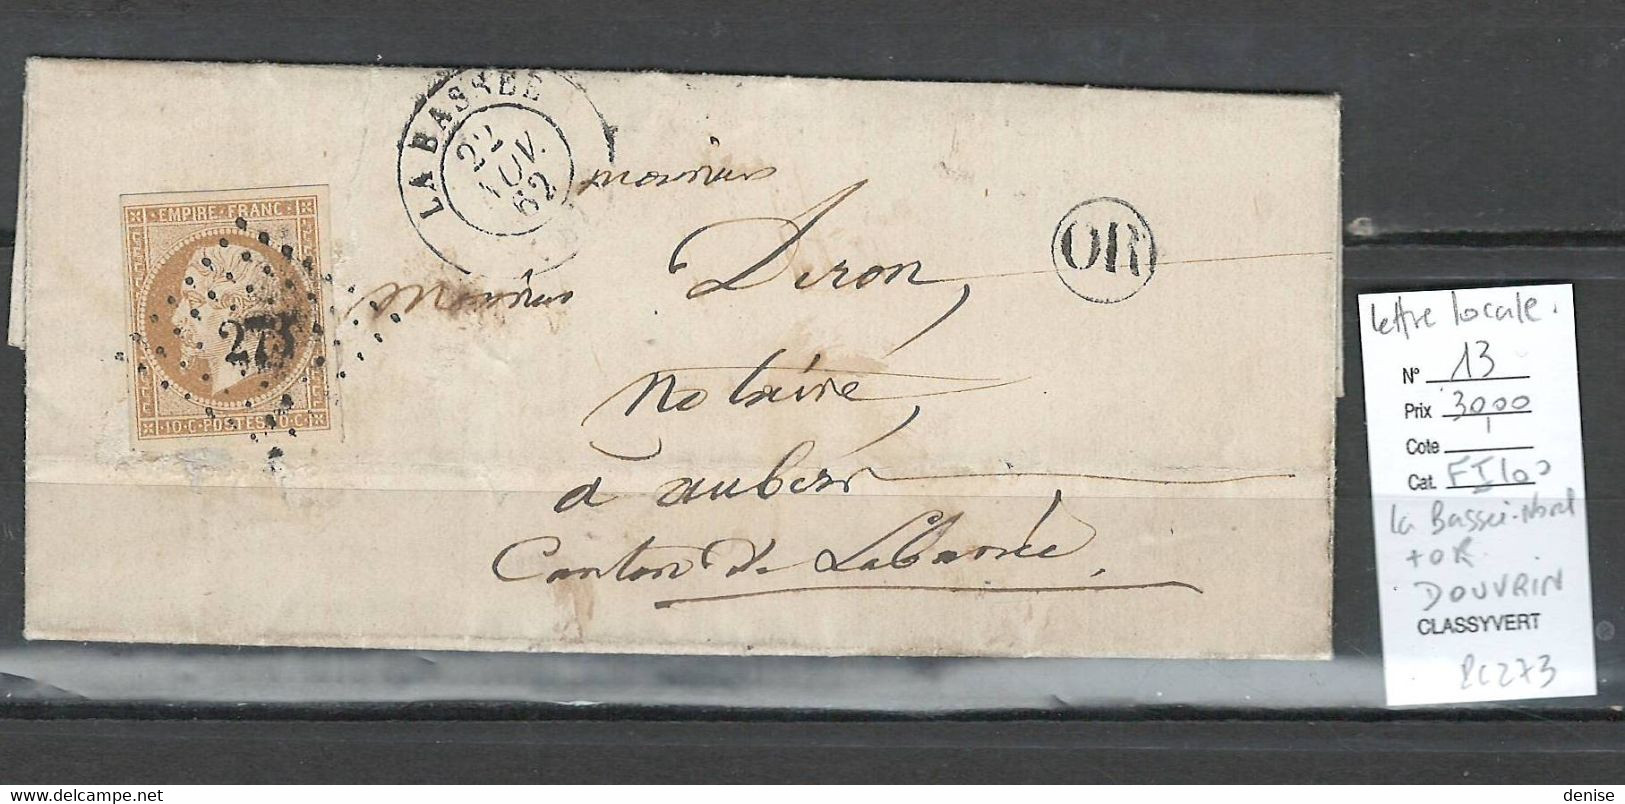 LA BASSEE
22
NOV.
62
EMPIRE FRANC
273
10·C·POSTES·10·C
OR
monsieur
Deron,
monsieur
notaire,
à aubers
Canton de Labassée,
lettre locale.
N° 13
Prix 30,00
Cote
Cat.
la Bassée-Nord
+ OR
DOUVRIN
CLASSYVERT
PC 273
delcampe.net
denise